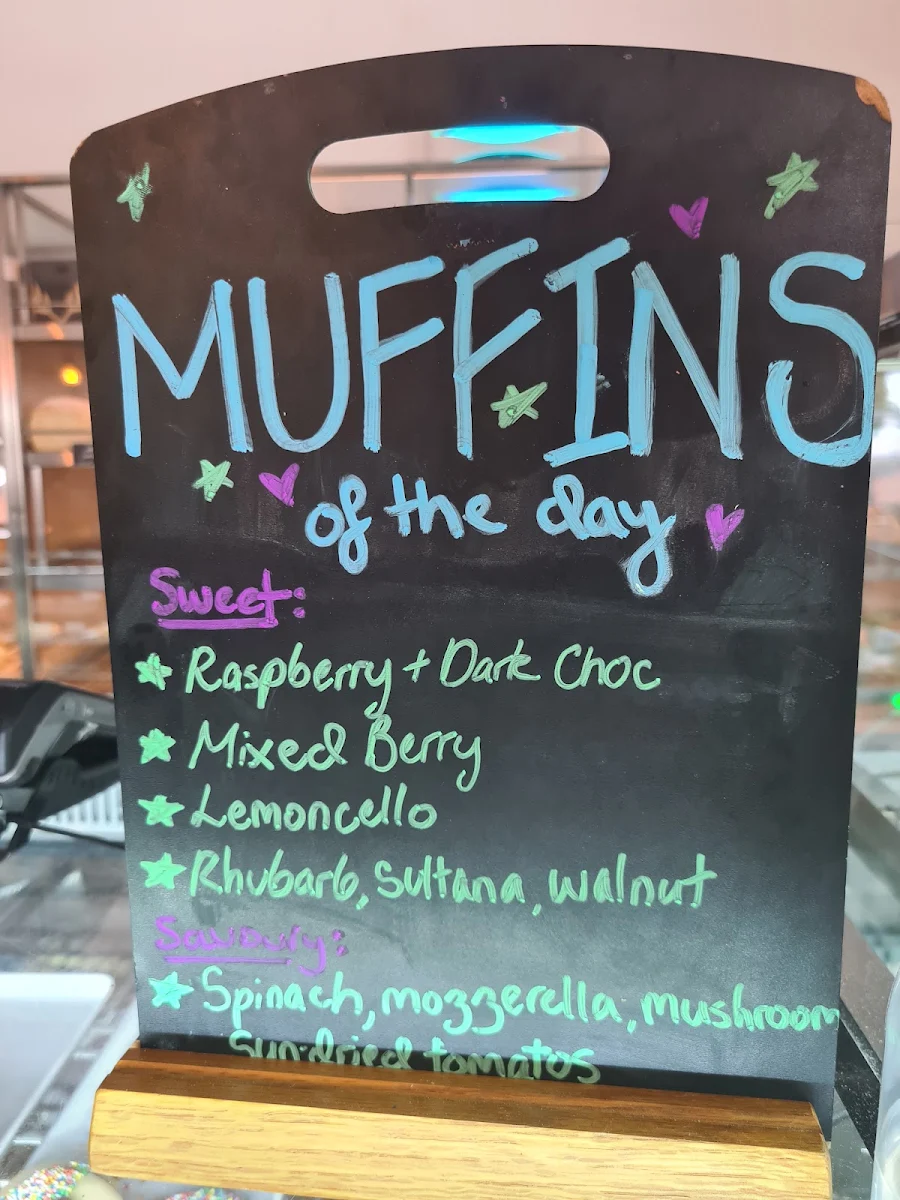 MUFFINS
of the day
Sweet:
Raspberry + Dark Choc
Mixed Berry
Lemoncello
Rhubarb, Sultana, walnut
Savoury:
Spinach, mozzerella, mushroom
Sun-dried tomatos